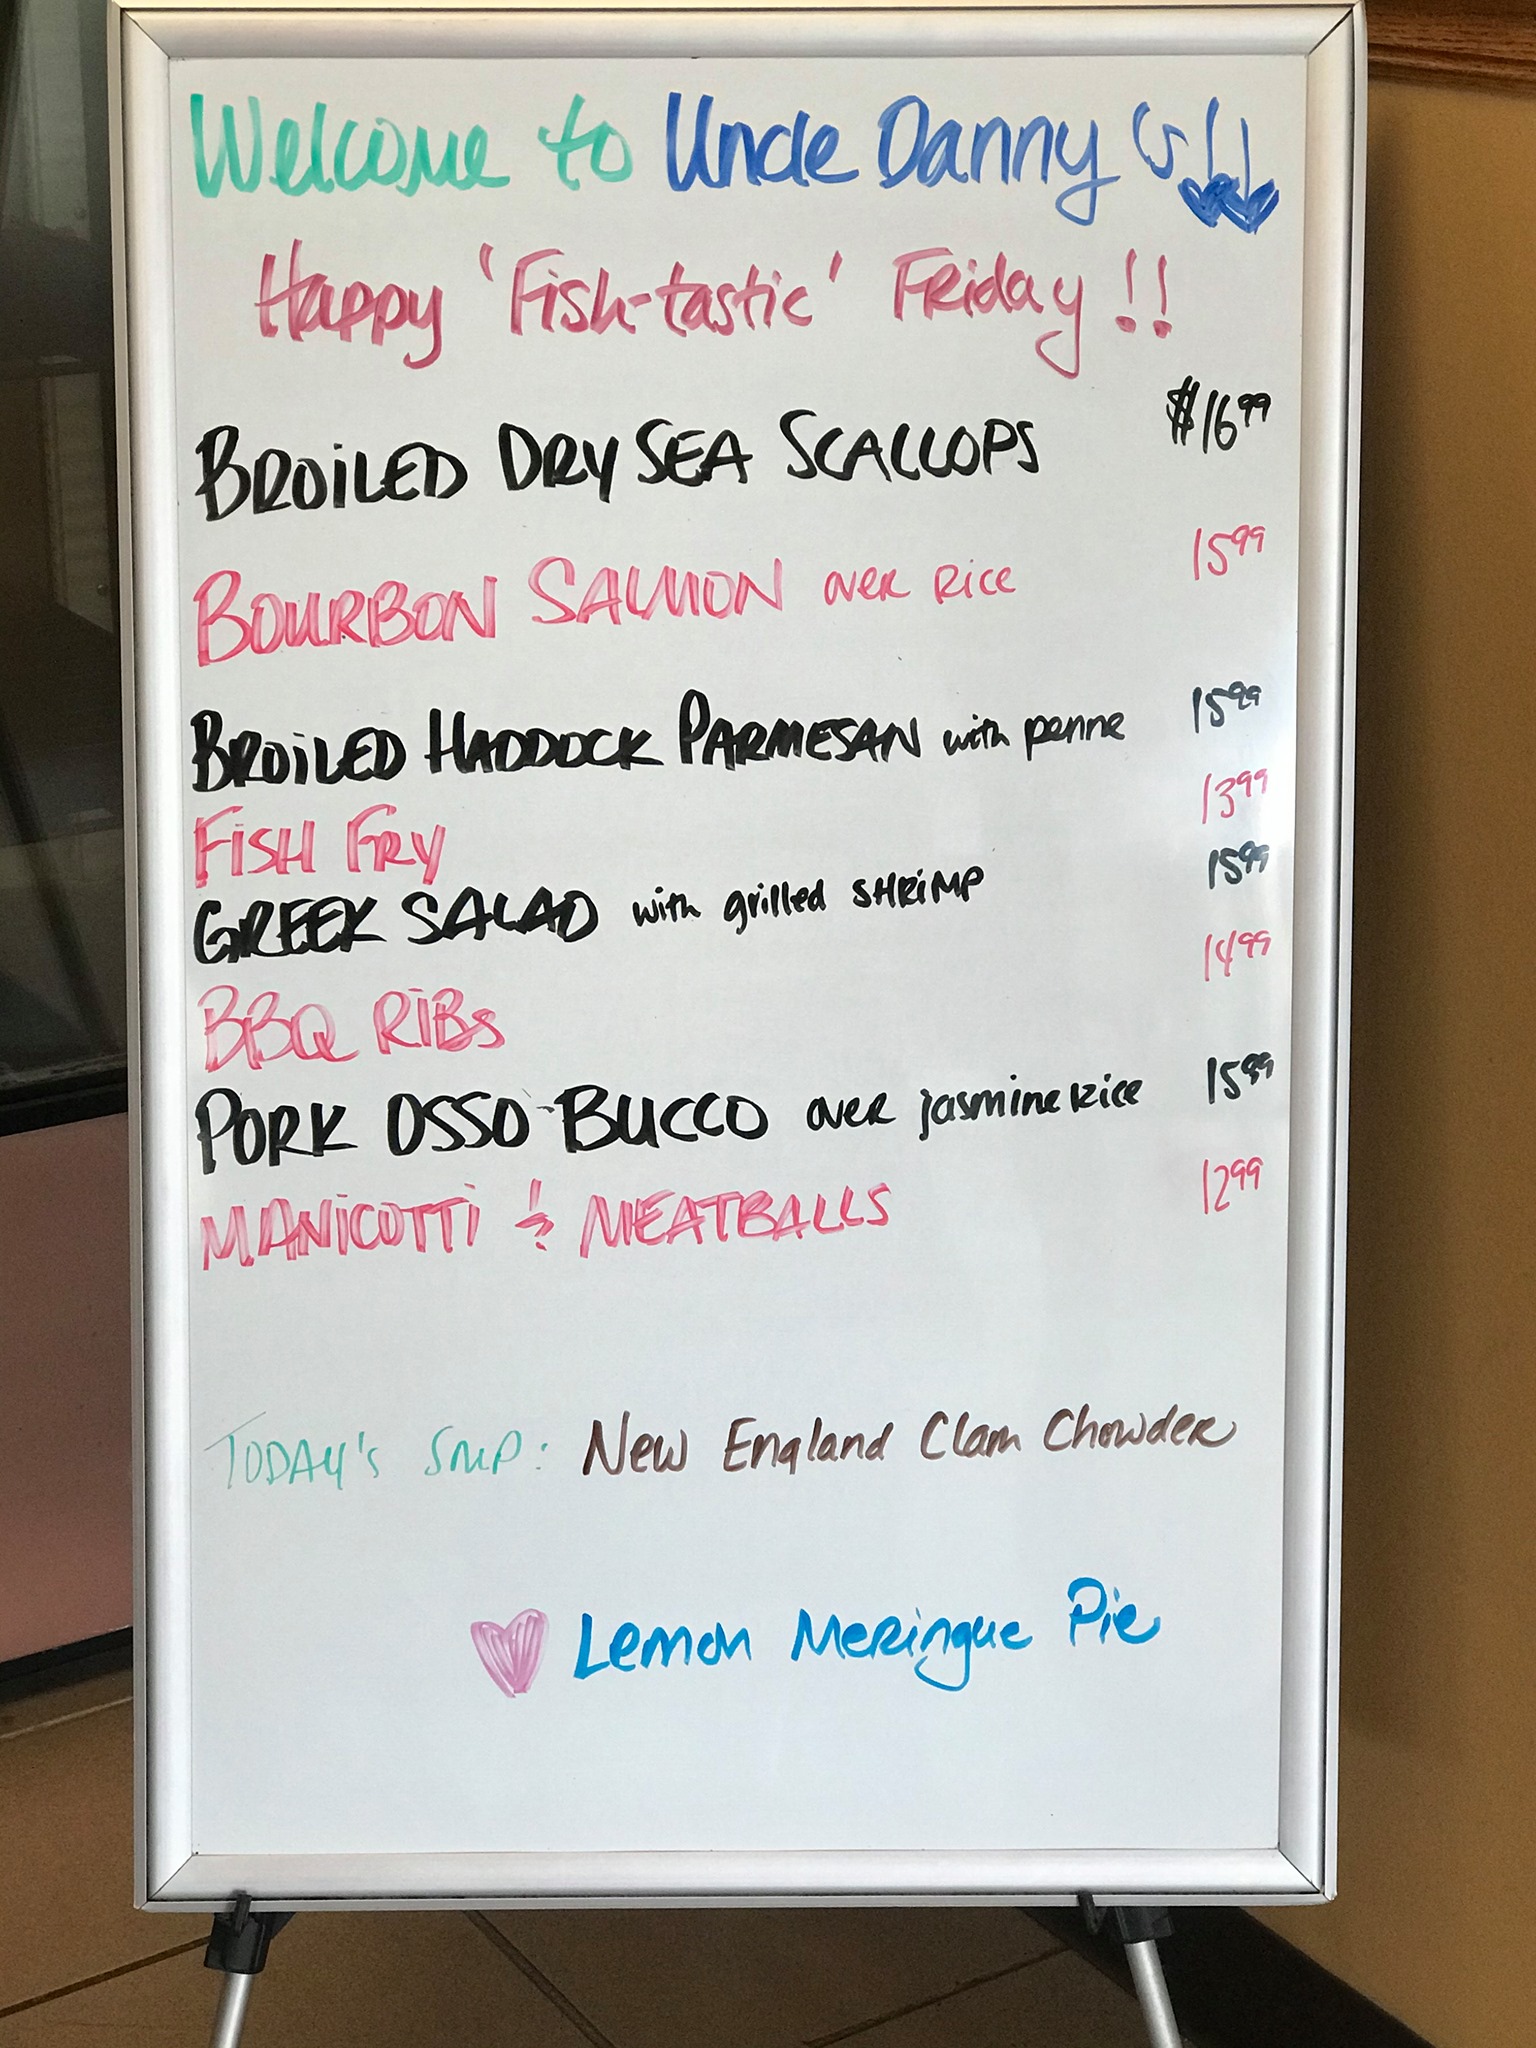 Welcome to Uncle Danny's!!
Happy 'Fish-tastic' Friday!!
BROILED DRY SEA SCALLOPS $16⁹⁹
BOURBON SALMON over Rice 15⁹⁹
BROILED HADDOCK PARMESAN with penne 15⁹⁹
FISH FRY 13⁹⁹
GREEK SALAD with grilled SHRIMP 15⁹⁹
BBQ RIBS 14⁹⁹
PORK OSSO-BUCCO over jasmine Rice 15⁹⁹
MANICOTTI & MEATBALLS 12⁹⁹
TODAY'S SOUP: New England Clam Chowder
Lemon Meringue Pie